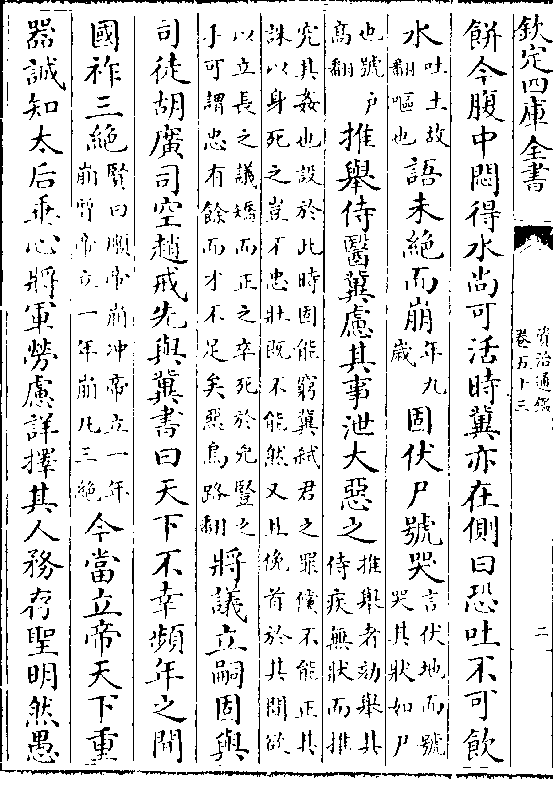 欽定四庫全書
資治通鑑
卷五十三
二
餅今腹中悶得水尚可活時冀亦在側曰恐吐不可飲
水吐土故翻嘔也語未絶而崩年九歲固伏尸號哭言伏地而號哭其狀如尸
也號戶高翻推舉侍醫冀慮其事泄大惡之推舉者劾舉其侍疾無狀而推
究其姦也設於此時固能窮冀弑君之罪儻不能正其
誅以身死之豈不忠壯既不能然又且俛首於其間欲
以立長之議矯而正之卒死於兇豎之手可謂忠有餘而才不足矣惡烏路翻將議立嗣固與
司徒胡廣司空趙戒先與冀書曰天下不幸頻年之間
國祚三絶賢曰順帝崩冲帝立一年崩質帝立一年崩凡三絶今當立帝天下重
器誠知太后垂心將軍勞慮詳擇其人務存聖明然愚